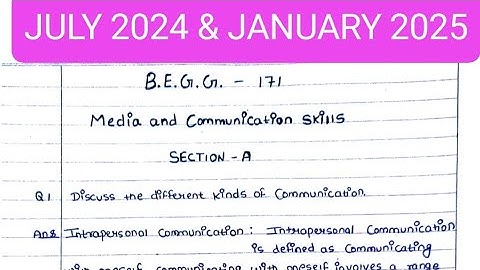 JULY 2024 & JANUARY 2025
B.E.G.G. - 171
Media and Communication Skills
SECTION - A
Q1 Discuss the different kinds of Communication.
Ans Intrapersonal Communication: Intrapersonal Communication
is defined as Communicating
with oneself. Communicating with oneself involves a range